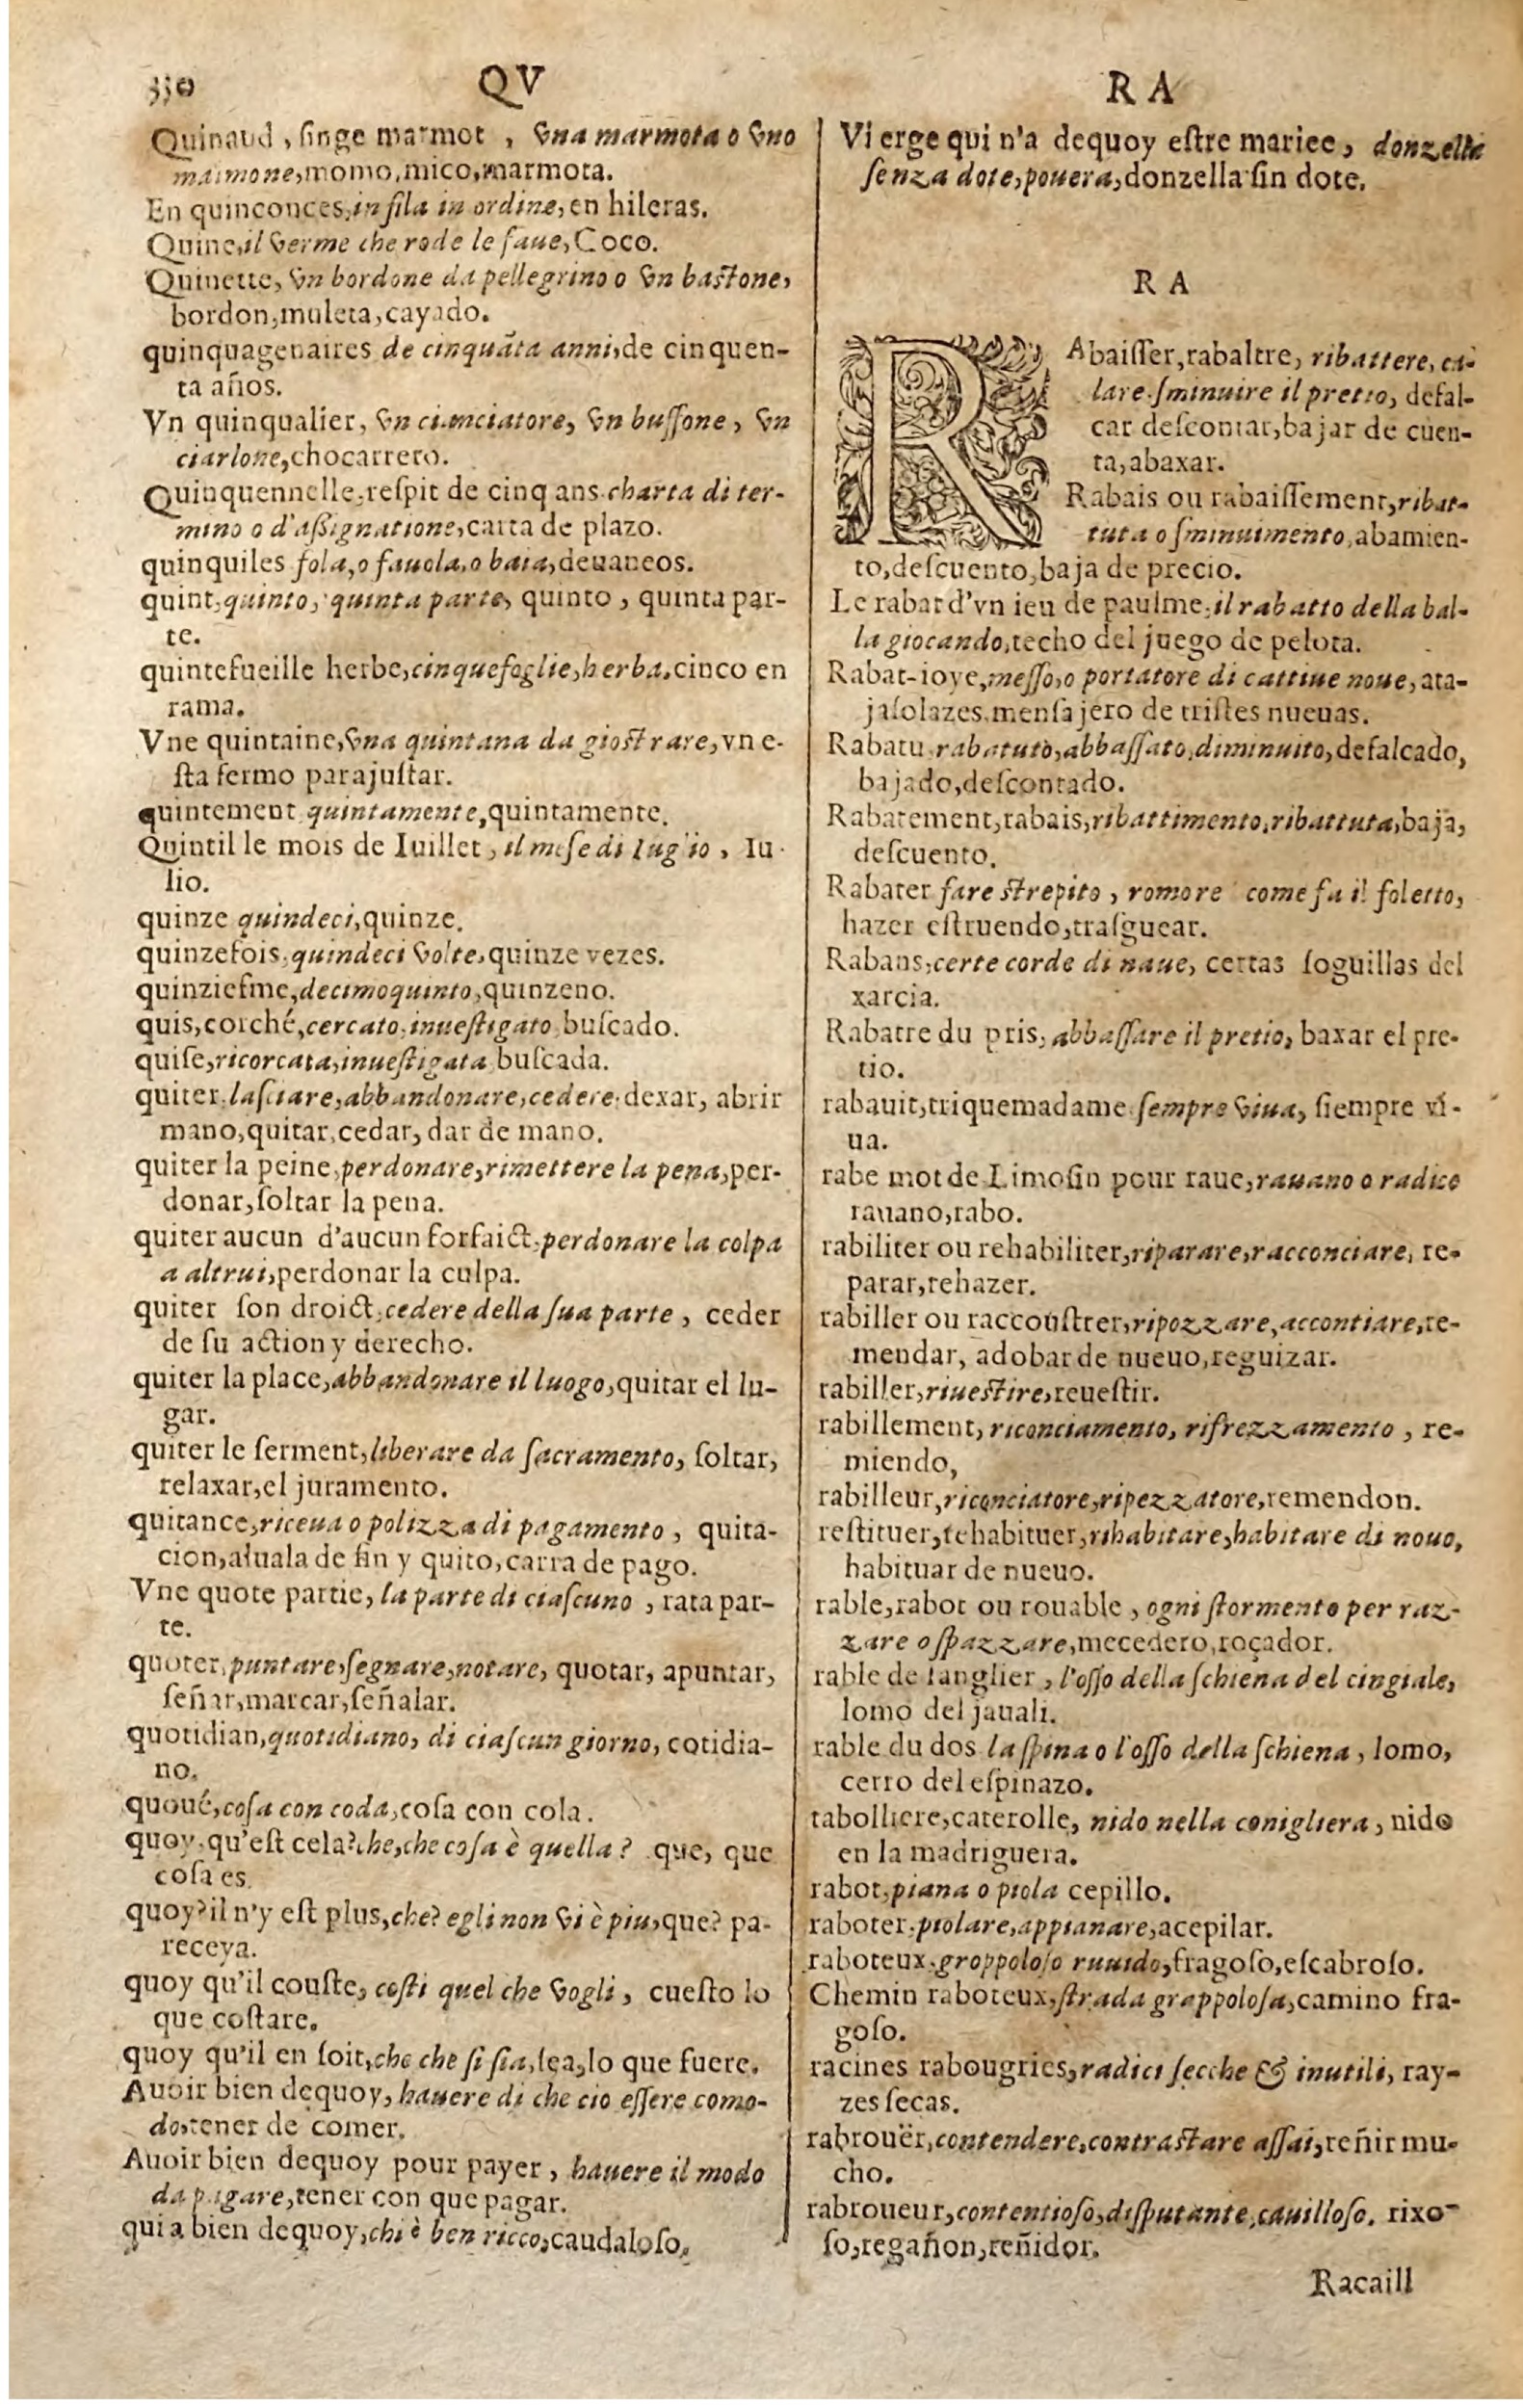 330
QV
Quinaud, ſinge marmot, vna marmota o vno
maimone, momo, mico, marmota.
En quinconces, in fila in ordine, en hileras.
Quine, il verme che rode le faue, Coco.
Quinette, vn bordone da pellegrino o vn baſtone,
bordon, muleta, cayado.
quinquagenaires de cinquãta anni, de cinquen-
ta años.
Vn quinqualier, vn cianciatore, vn buffone, vn
ciarlone, chocarrero.
Quinquennelle, reſpit de cinq ans charta di ter-
mino o d'aßignatione, carta de plazo.
quinquiles fola, o fauola, o baia, deuaneos.
quint, quinto, quinta parte, quinto, quinta par-
te.
quintefueille herbe, cinquefoglie, herba, cinco en
rama.
Vne quintaine, vna quintana da gioſtrare, vn e-
ſta fermo para juſtar.
quintement quintamente, quintamente.
Quintil le mois de Iuillet, il meſe di lug'io, Iu-
lio.
quinze quindeci, quinze.
quinzefois, quindeci volte, quinze vezes.
quinzieſme, decimoquinto, quinzeno.
quis, corché, cercato, inueſtigato, buſcado.
quiſe, ricorcata, inueſtigata, buſcada.
quiter, laſciare, abbandonare, cedere, dexar, abrir
mano, quitar, cedar, dar de mano.
quiter la peine, perdonare, rimettere la pena, per-
donar, ſoltar la pena.
quiter aucun d'aucun forfaict, perdonare la colpa
a altrui, perdonar la culpa.
quiter ſon droict, cedere della ſua parte, ceder
de ſu action y derecho.
quiter la place, abbandonare il luogo, quitar el lu-
gar.
quiter le ſerment, liberare da ſacramento, ſoltar,
relaxar, el juramento.
quitance, riceua o polizza di pagamento, quita-
cion, aluala de fin y quito, carra de pago.
Vne quote partie, la parte di ciaſcuno, rata par-
te.
quoter, puntare, ſegnare, notare, quotar, apuntar,
ſeñar, marcar, ſeñalar.
quotidian, quotidiano, di ciaſcun giorno, cotidia-
no.
quoué, coſa con coda, coſa con cola.
quoy, qu'eſt cela? che, che coſa è quella? que, que
coſa es.
quoy? il n'y eſt plus, che? egli non vi è piu, que? pa-
receya.
quoy qu'il couſte, coſti quel che vogli, cueſto lo
que coſtare.
quoy qu'il en ſoit, che che ſi ſia, ſea, lo que fuere.
Auoir bien dequoy, hauere di che cio eſſere como-
do, tener de comer.
Auoir bien dequoy pour payer, hauere il modo
da pagare, tener con que pagar.
qui a bien dequoy, chi è ben ricco, caudaloſo.
RA
Vierge qui n'a dequoy eſtre mariee, donzella
ſenza dote, pouera, donzella ſin dote.
RA
RAbaiſſer, rabaltre, ribattere, ca-
lare ſminuire il pretio, defal-
car deſcontar, bajar de cuen-
ta, abaxar.
Rabais ou rabaiſſement, ribat-
tuta o ſminuimento, abamien-
to, deſcuento, baja de precio.
Le rabat d'vn ieu de paulme, il rabatto della bal-
la giocando, techo del juego de pelota.
Rabat-ioye, meſſo, o portatore di cattiue noue, ata-
jaſolazes, menſajero de triſtes nueuas.
Rabatu rabatuto, abbaſſato, diminuito, defalcado,
bajado, deſcontado.
Rabatement, rabais, ribattimento, ribattuta, baja,
deſcuento.
Rabater fare ſtrepito, romore come fa il foletto,
hazer eſtruendo, traſguear.
Rabans, certe corde di naue, certas ſoguillas del
xarcia.
Rabatre du pris, abbaſſare il pretio, baxar el pre-
tio.
rabauit, triquemadame ſempre viua, ſiempre vi-
ua.
rabe mot de Limoſin pour raue, rauano o radice
rauano, rabo.
rabiliter ou rehabiliter, riparare, racconciare, re-
parar, rehazer.
rabiller ou raccouſtrer, ripozzare, accontiare, re-
mendar, adobar de nueuo, reguizar.
rabiller, riueſtire, reueſtir.
rabillement, riconciamento, rifrezzamento, re-
miendo,
rabilleur, riconciatore, ripezzatore, remendon.
reſtituer, rehabituer, rihabitare, habitare di nouo,
habituar de nueuo.
rable, rabot ou rouable, ogni ſtormento per raz-
zare o ſpazzare, mecedero, roçador.
rable de ſanglier, l'oſſo della ſchiena del cingiale,
lomo del jauali.
rable du dos la ſpina o l'oſſo della ſchiena, lomo,
cerro del eſpinazo.
tabolliere, caterolle, nido nella conigliera, nido
en la madriguera.
rabot, piana o piola cepillo.
raboter, piolare, appianare, acepilar.
raboteux, groppoloſo ruuido, fragoſo, eſcabroſo.
Chemin raboteux, ſtrada grappoloſa, camino fra-
goſo.
racines rabougries, radici ſecche & inutili, ray-
zes ſecas.
rabrouër, contendere, contraſtare aſſai, reñir mu-
cho.
rabroueur, contentioſo, diſputante, cauilloſo. rixo-
ſo, regañon, reñidor.
Racaill